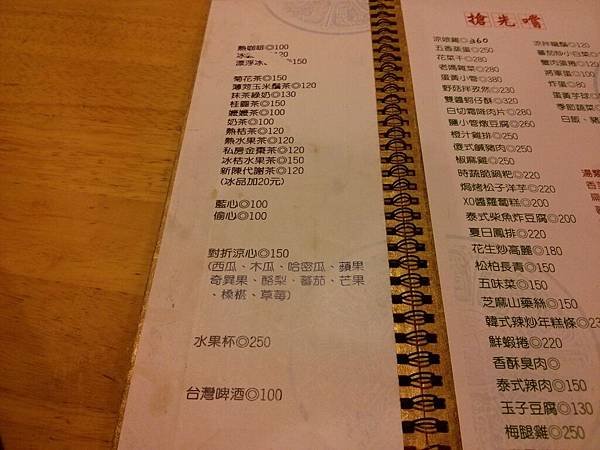 熱咖啡◎100
漂浮冰
菊花茶◎150
薄荷玉米鬚茶◎120
抹茶綠奶◎130
桂圓茶◎150
嬤嬤茶◎100
奶茶◎100
熱桔茶◎120
熱水果茶◎120
私房金棗茶◎120
冰桔水果茶◎150
新陳代謝茶◎120
(冰品加20元)
藍心◎100
偷心◎100
對折涼心◎150
(西瓜、木瓜、哈密瓜、蘋果
奇異果、酪梨、蕃茄、芒果
、桑椹、草莓)
水果杯◎250
台灣啤酒◎100
搶先嚐
涼娘雞◎260
五香蒸蛋◎250
花菜干◎280
老媽雞菜◎280
蛋黃小管◎380
野菇拌孜然◎230
雙醬蚵仔酥◎320
白切霜降肉片◎280
鹽小管燉豆腐◎260
橙汁雞排◎250
傻式鹹豬肉◎250
椒麻雞◎250
時蔬脆鍋粑◎220
焗烤松子洋芋◎220
XO醬蘿蔔糕◎200
泰式柴魚炸豆腐◎200
夏日鳳排◎220
花生炒高麗◎180
松柏長青◎150
五味菜◎150
芝麻山藥絲◎150
韓式辣炒年糕條◎23
鮮蝦捲◎220
香酥臭肉◎
泰式辣肉◎150
玉子豆腐◎130
梅腿雞◎250
涼拌龍鬚◎120
蕃茄炒小白菜◎
蟹肉蛋捲◎120
將軍蛋◎100
炸蛋◎80
蛋黃芋球◎
季節蔬菜◎
白飯、豬
湯類